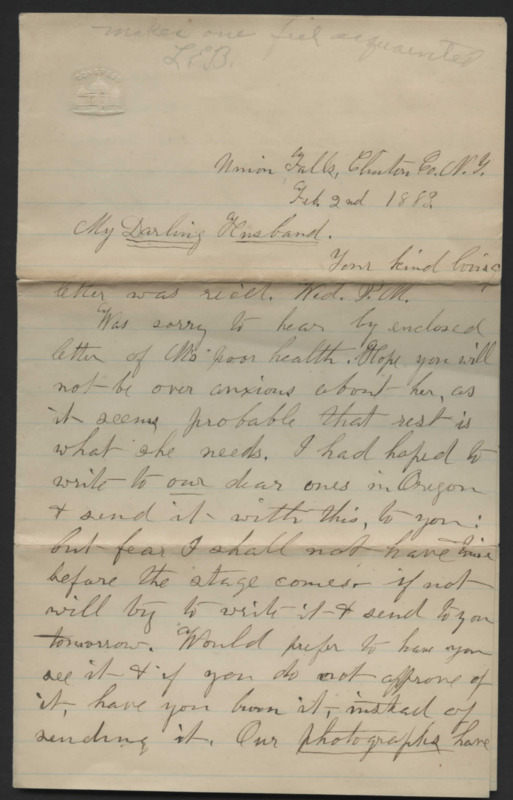 makes one feel acquainted
L.E.B.
CONGRESS
Union Falls, Clinton Co. N.Y.
Feb. 2nd 1883.
My Darling Husband.
Your kind loving
letter was rec'd. Wed. P.M.
Was sorry to hear by enclosed
letter of M's poor health. Hope you will
not be over anxious about her, as
it seems probable that rest is
what she needs. I had hoped to
write to our dear ones in Oregon
& send it with this, to you:
but fear I shall not have time
before the stage comes & if not
will try to write it & send to you
tomorrow. Would prefer to have you
see it & if you do not approve of
it, have you burn it, instead of
sending it. Our photographs have